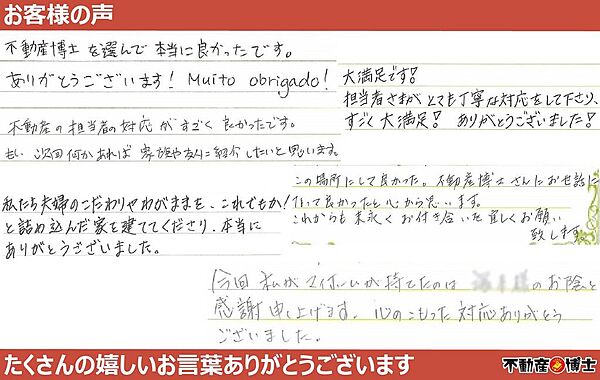 お客様の声
不動産博士を選んで本当に良かったです。
ありがとうございます! Muito obrigado!
大満足です!
担当者さまがとても丁寧な対応をして下さり、
すごく大満足! ありがとうございました!
不動産の担当者の対応がすごく良かったです。
もし次回何かあれば家族や友人に紹介したいと思います。
この場所にして良かった。不動産博士さんにお世話に
なって良かったと心から思います。
これからも末永くお付き合いた宜しくお願い
致します。
私たち夫婦のこだわりやわがままを、これでもか!
と詰め込んだ家を建ててくださり、本当に
ありがとうございました。
今回私がマイホームが持てたのは のお陰と
感謝申し上げます。心のこもった対応ありがとう
ございました。
たくさんの嬉しいお言葉ありがとうございます
不動産博士